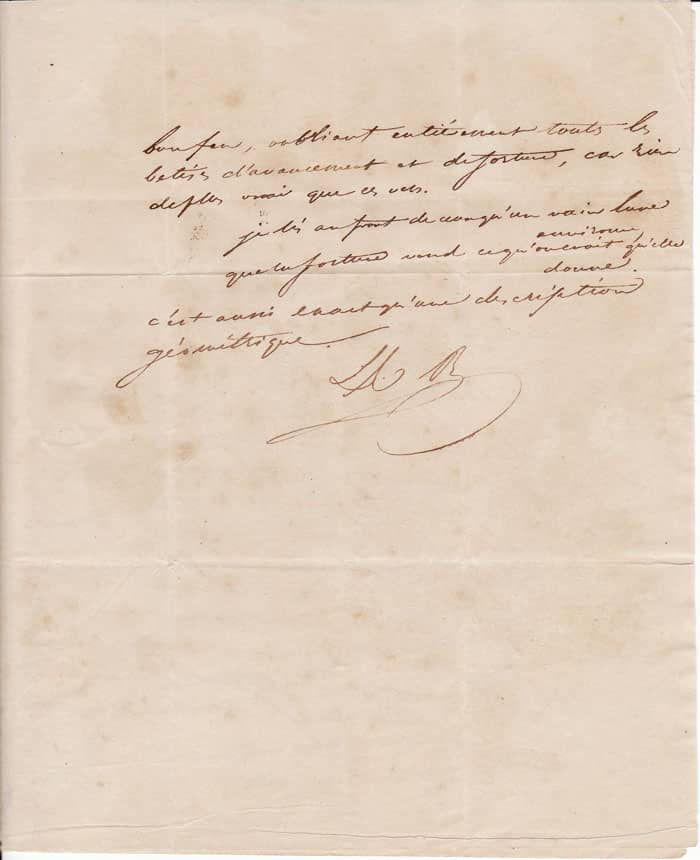 bon feu, oubliant entiérement touts les
betises d'avancement et de fortune, car rien
de plus vrai que ces vers.
je lis au front de ceux qu'un vain luxe
environne
que la fortune vend ce qu'on croit qu'elle
donne.
c'est aussi exact qu'une description
géométrique.